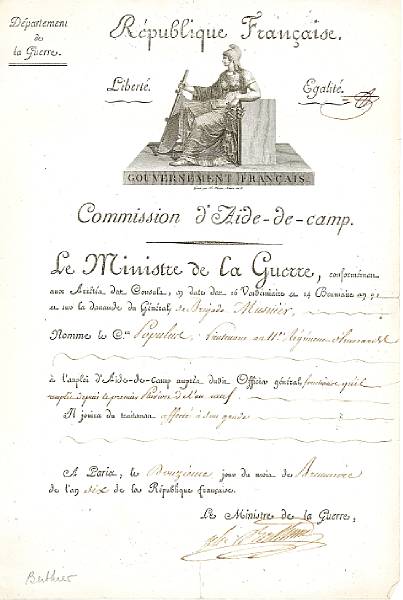 Département
de
la Guerre.
République Française.
Liberté.
Egalité.
GOUVERNEMENT FRANÇAIS.
Commission d'Aide-de-camp.
Le Ministre de la Guerre, conformément
aux Arrêtés des Consuls, en date des 16 Vendémiaire et 14 Brumaire an 9
et sur la demande du Général de Brigade Musnier,
Nomme le C.en Lieutenant au 11.e Régiment
à l'emploi d'Aide-de-camp auprès dudit Officier général, fonctions qu'il
remplit depuis le premier de l'an neuf
Il jouira du traitement affecté à son grade
A Paris, le Douzième jour du mois de Brumaire
de l'an dix de la République française.
Le Ministre de la Guerre,
Berthier